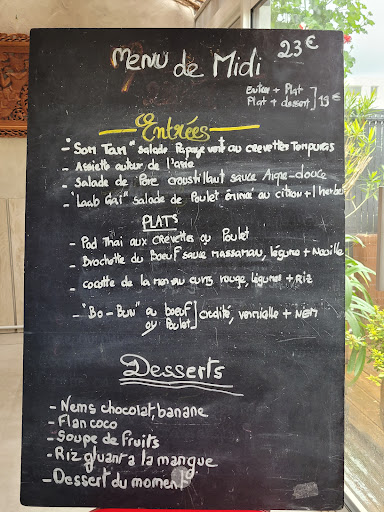 Menu de Midi 23€
Entrée + Plat
Plat + dessert ] 19€
Entrées
- "Som Tam" salade Papaye vert au crevettes Tempuras
- Assiette autour de l'asie
- Salade de Porc croustillant sauce Aigre-douce
- "Laab Gai" salade de Poulet émincé au citron + herbe
PLATS
- Pad Thai aux crevettes ou Poulet
- Brochette du Boeuf sauce massaman, légume + Nouille
- cocotte de la mer au curry rouge, légumes + Riz
- "Bo-Bun" au boeuf ] crudité, vermicelle + NEM
ou Poulet
Desserts
- Nems chocolat, banane
- Flan coco
- Soupe de fruits
- Riz gluant a la mangue
- Dessert du moment